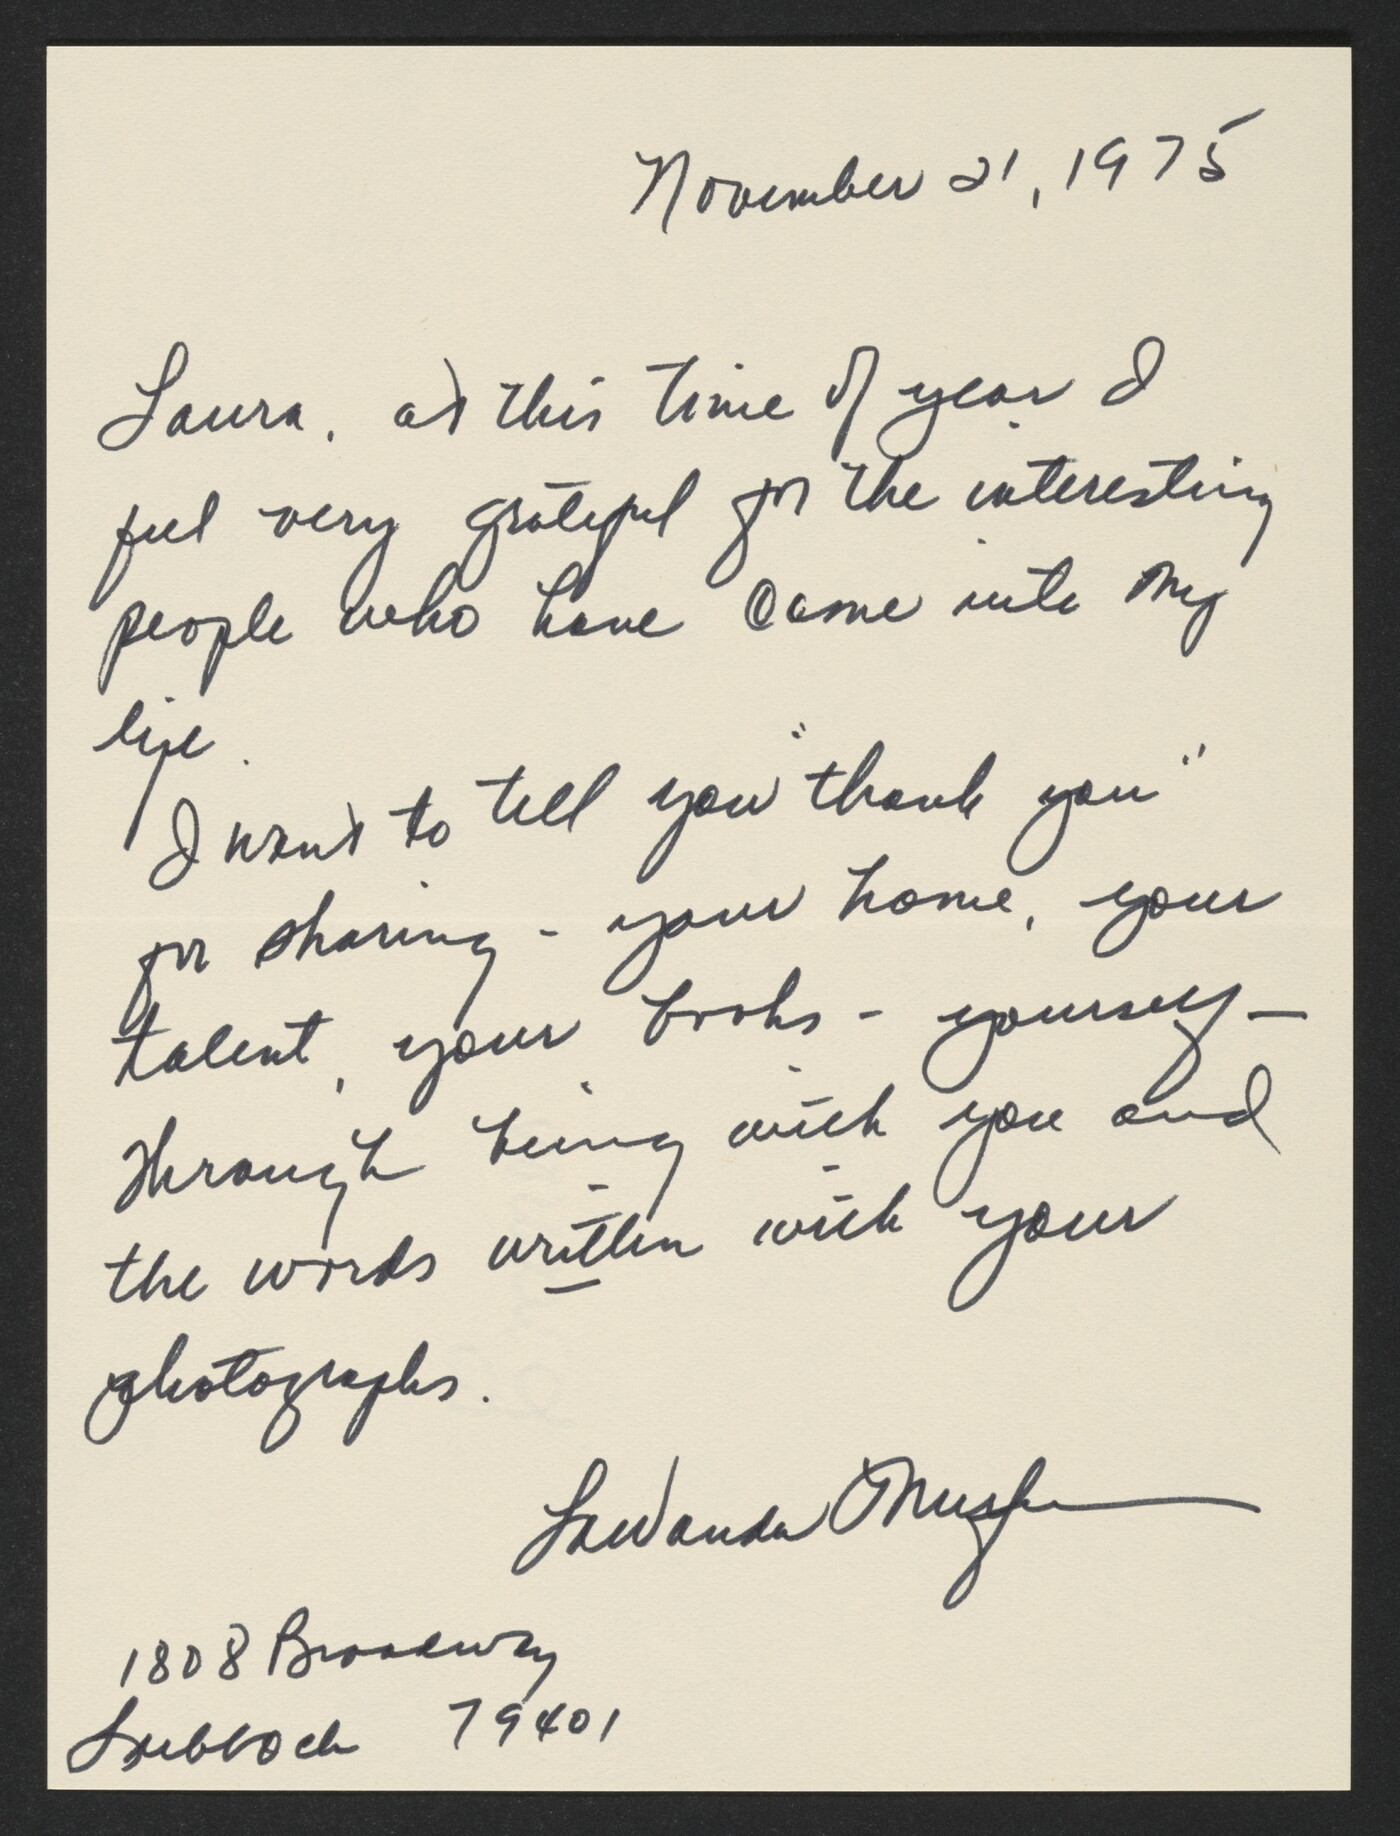 November 21, 1975
Laura, at this time of year I
feel very grateful for the interesting
people who have came into my
life.
I want to tell you "thank you"
for sharing - your home, your
talent, your books - yourself -
through being with you and
the words written with your
photographs.
LaWanda
1808 Broadway
Lubbock 79401